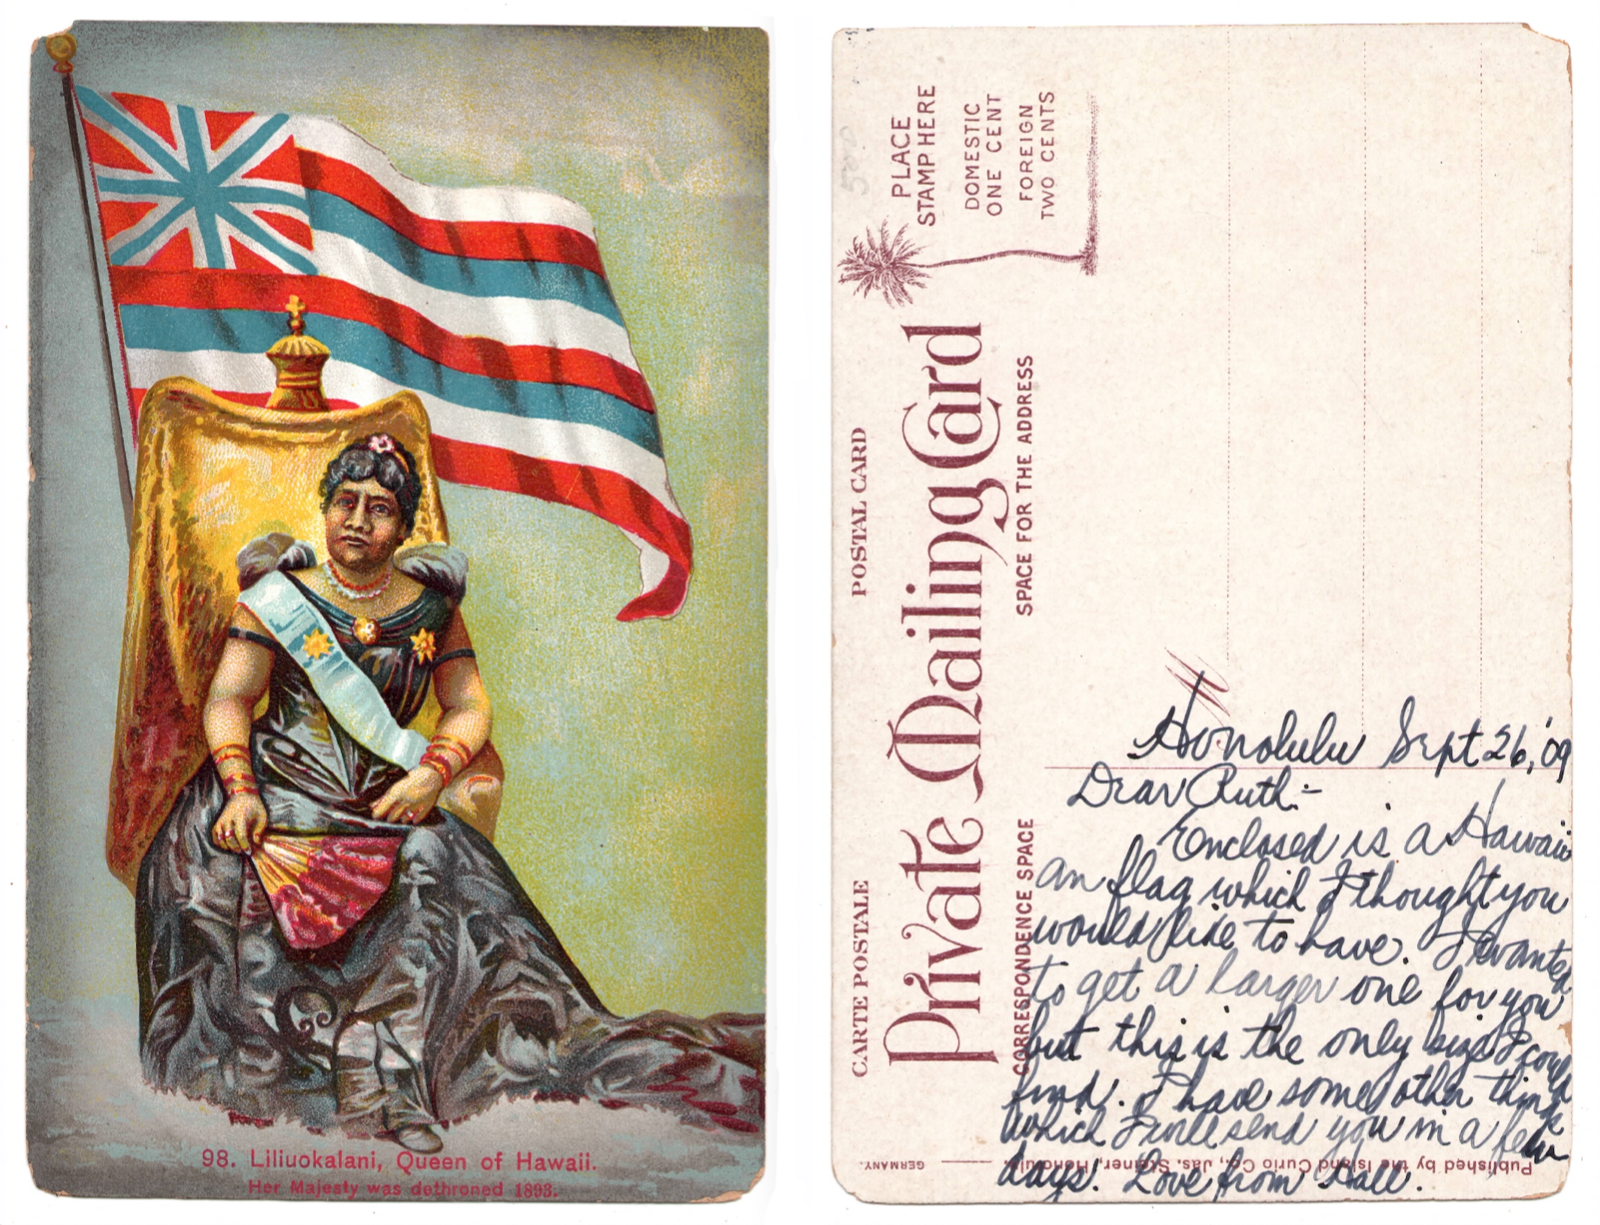 98. Liliuokalani, Queen of Hawaii.
Her Majesty was dethroned 1893.
PLACE
STAMP HERE
DOMESTIC
ONE CENT
FOREIGN
TWO CENTS
POSTAL CARD
CARTE POSTALE
Private Mailing Card
SPACE FOR THE ADDRESS
CORRESPONDENCE SPACE
Honolulu Sept 26, '09
Dear Ruth:-
Enclosed is a Hawaii
an flag which I thought you
would like to have. I wanted
to get a larger one for you
but this is the only size I could
find. I have some other things
which I will send you in a few
days. Love from
Published by the Island Curio Co., Jas. Steiner, Honolulu.
GERMANY